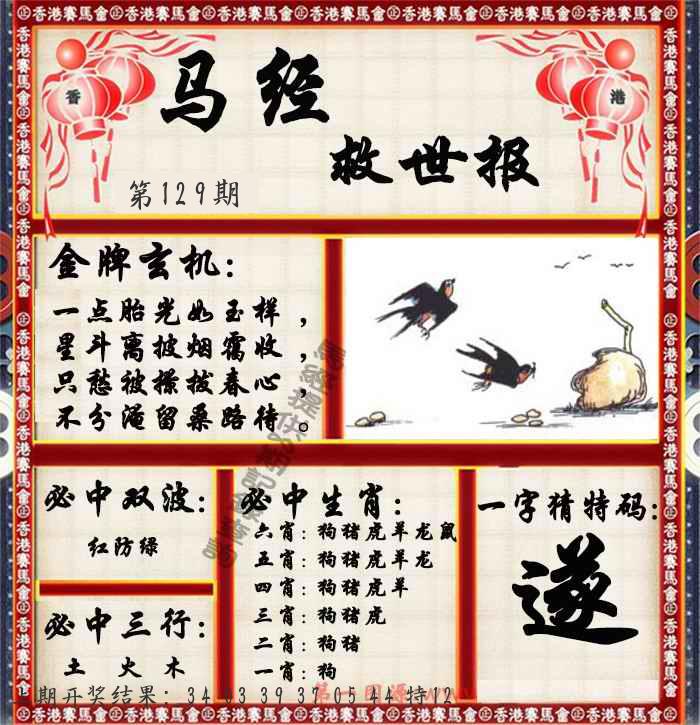 香港賽馬會
香
港
马经
救世报
第129期
金牌玄机:
一点胎光如玉样，
星斗离披烟霭收，
只愁被撩拔春心，
不分淹留桑路待。
必中双波:
红防绿
必中三行:
土 火 木
必中生肖:
六肖: 狗猪虎羊龙鼠
五肖: 狗猪虎羊龙
四肖: 狗猪虎羊
三肖: 狗猪虎
二肖: 狗猪
一肖: 狗
一字猜特码:
遂
期开奖结果: 34 03 39 37 05 44 特12